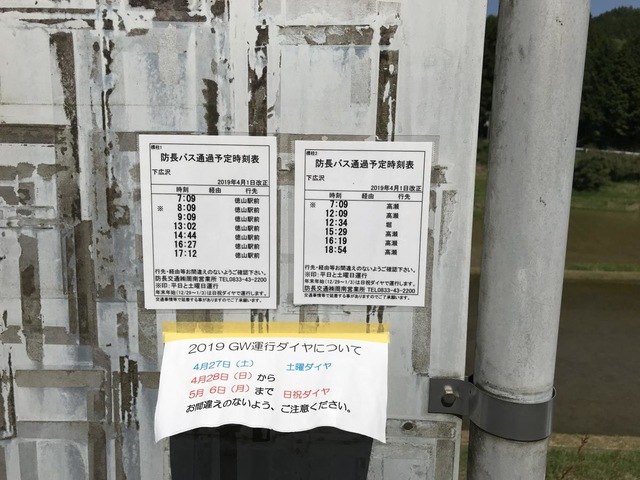 標柱1
防長バス通過予定時刻表
下広沢
2019年4月1日改正
時刻 経由 行先
7:09 徳山駅前
※ 8:09 徳山駅前
9:09 徳山駅前
13:02 徳山駅前
14:44 徳山駅前
16:27 徳山駅前
17:12 徳山駅前
行先・経由等お間違えのないようご確認下さい。
防長交通㈱周南営業所 TEL0833-43-2200
※印:平日と土曜日運行
年末年始(12/29~1/3)は日祝ダイヤで運行します。
交通事情等で延着する事がありますのでご了承願います。
標柱2
防長バス通過予定時刻表
下広沢
2019年4月1日改正
時刻 経由 行先
※ 7:09 高瀬
12:09 高瀬
12:34 堀
15:29 高瀬
16:19 高瀬
18:54 高瀬
行先・経由等お間違えのないようご確認下さい。
※印:平日と土曜日運行
防長交通㈱周南営業所 TEL0833-43-2200
年末年始(12/29~1/3)は日祝ダイヤで運行します。
交通事情等で延着する事がありますのでご了承願います。
2019 GW運行ダイヤについて
4月27日(土) 土曜ダイヤ
4月28日(日)から
5月 6日(月)まで 日祝ダイヤ
お間違えのないよう、ご注意ください。